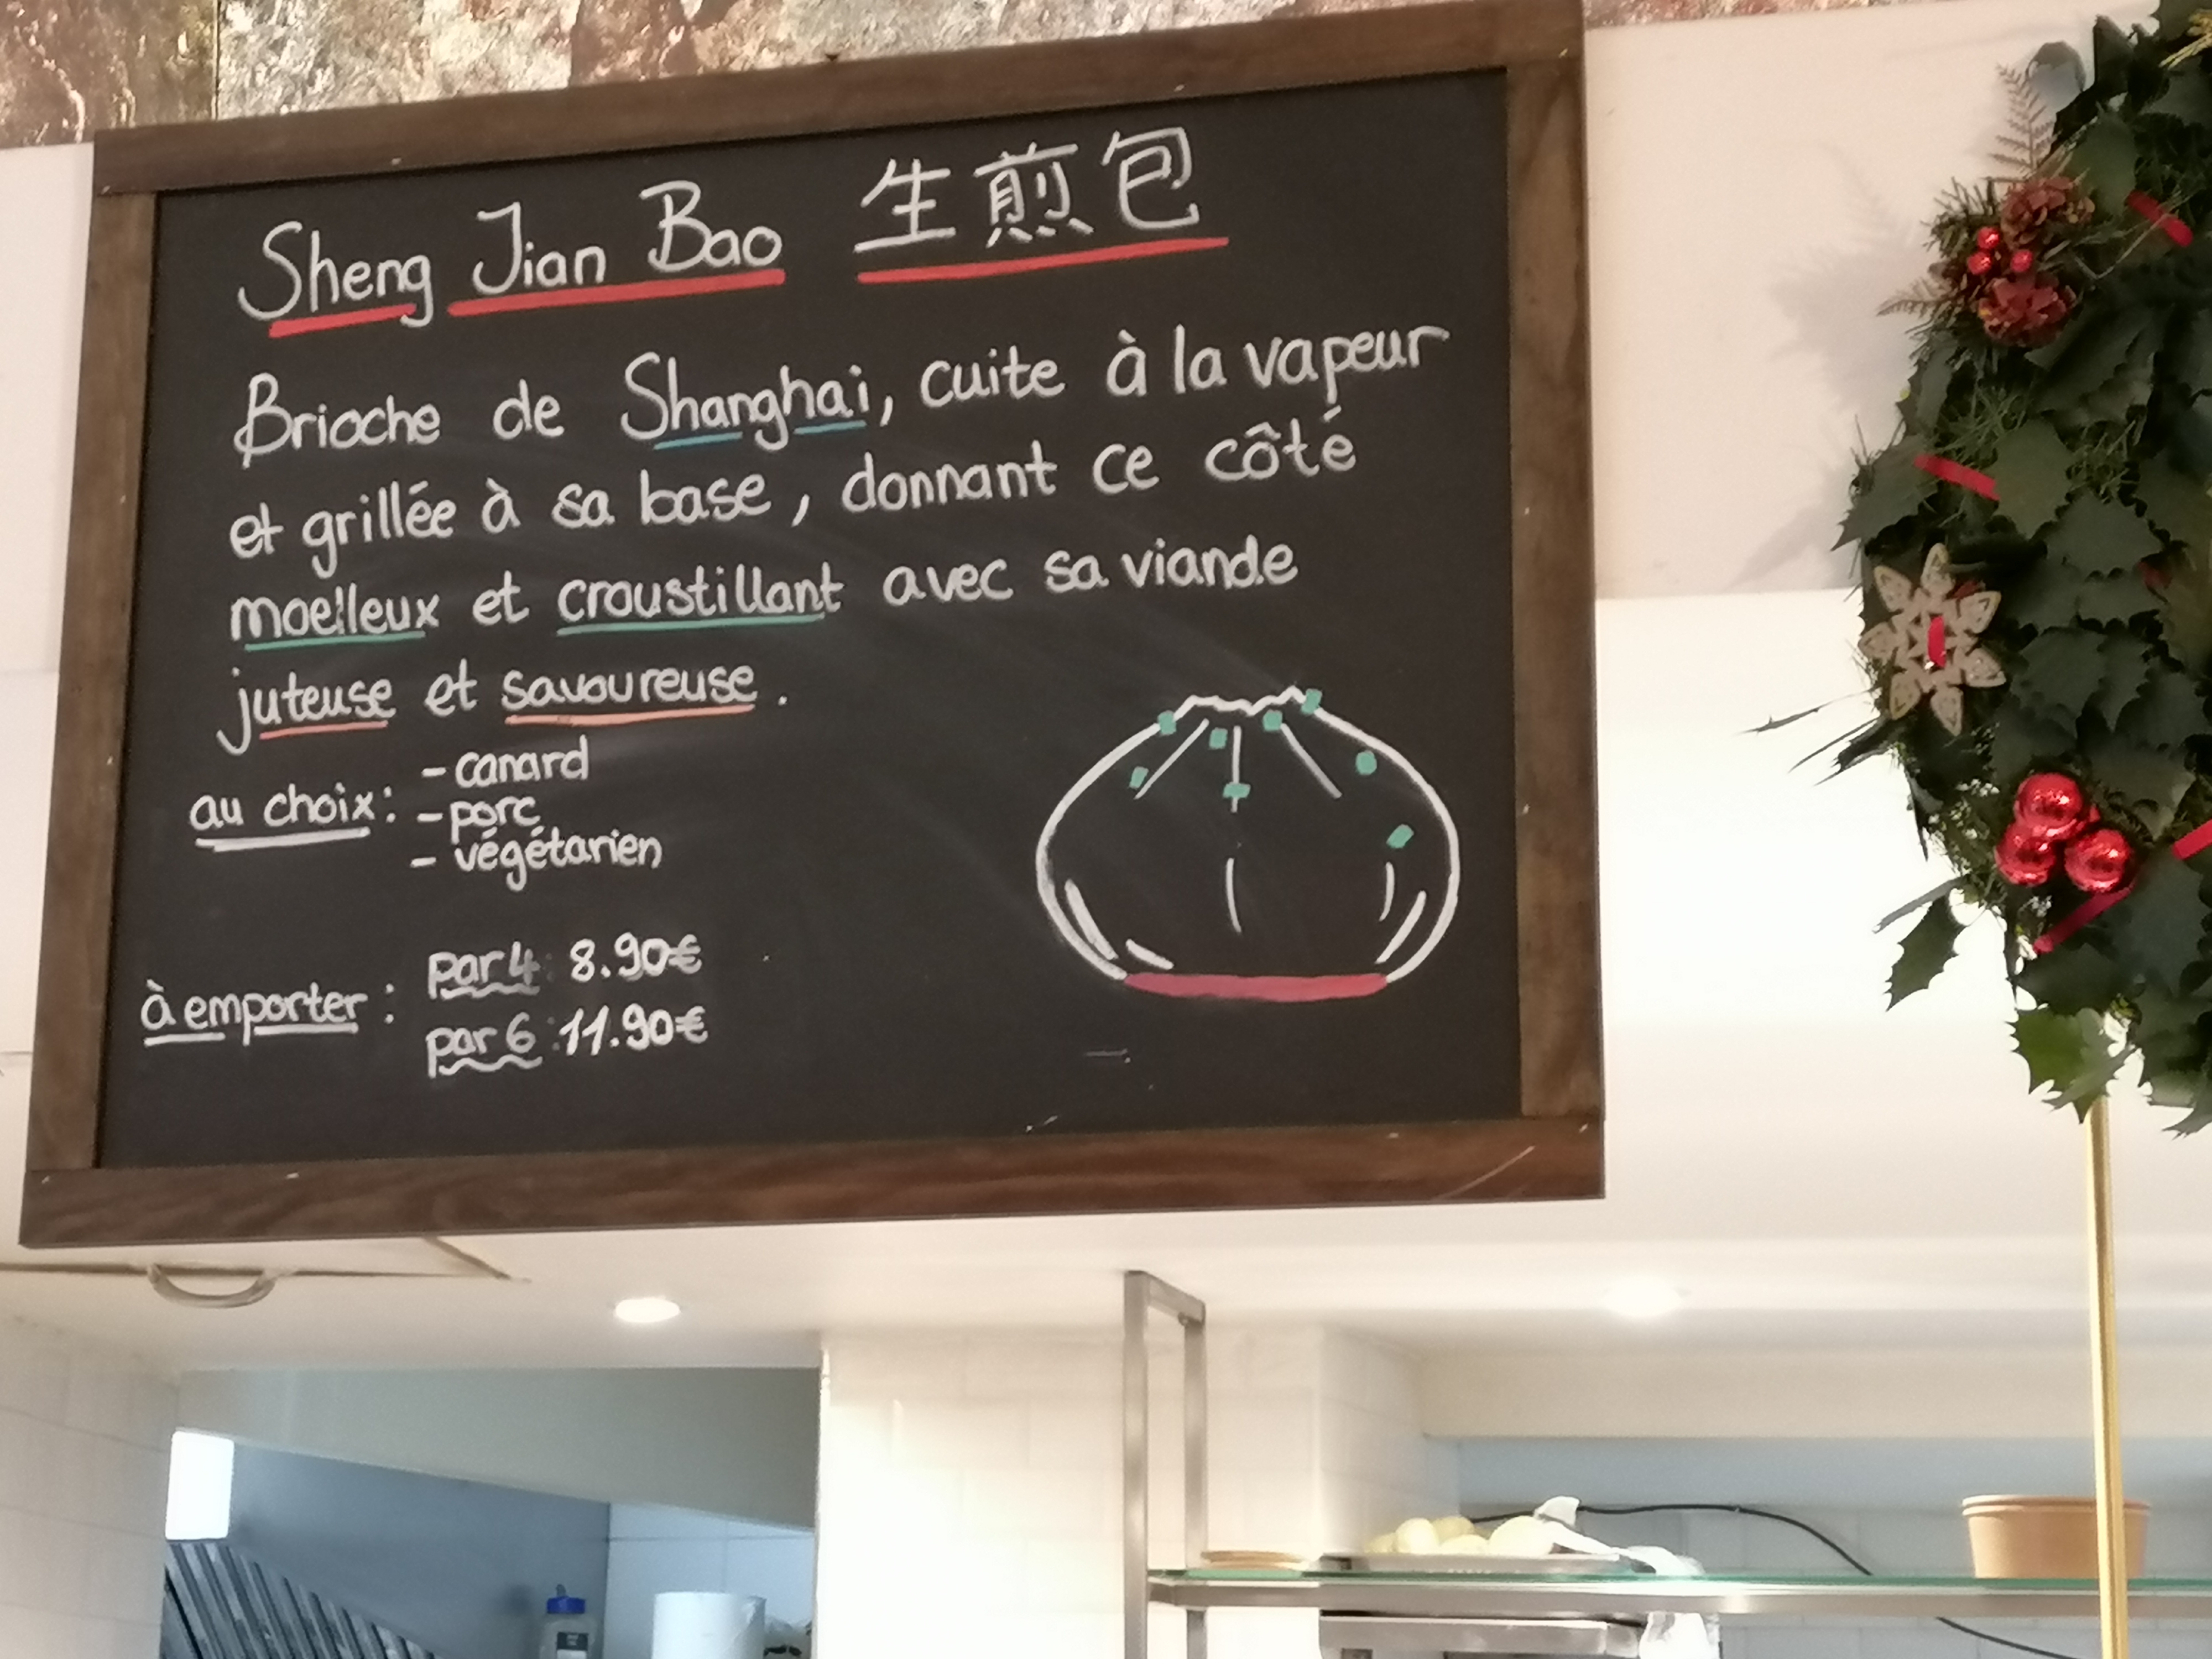 Sheng Jian Bao 生煎包
Brioche de Shanghai, cuite à la vapeur
et grillée à sa base, donnant ce côté
moelleux et croustillant avec sa viande
juteuse et savoureuse.
au choix: - canard
- porc
- végétarien
à emporter: par 4: 8.90€
par 6: 11.90€